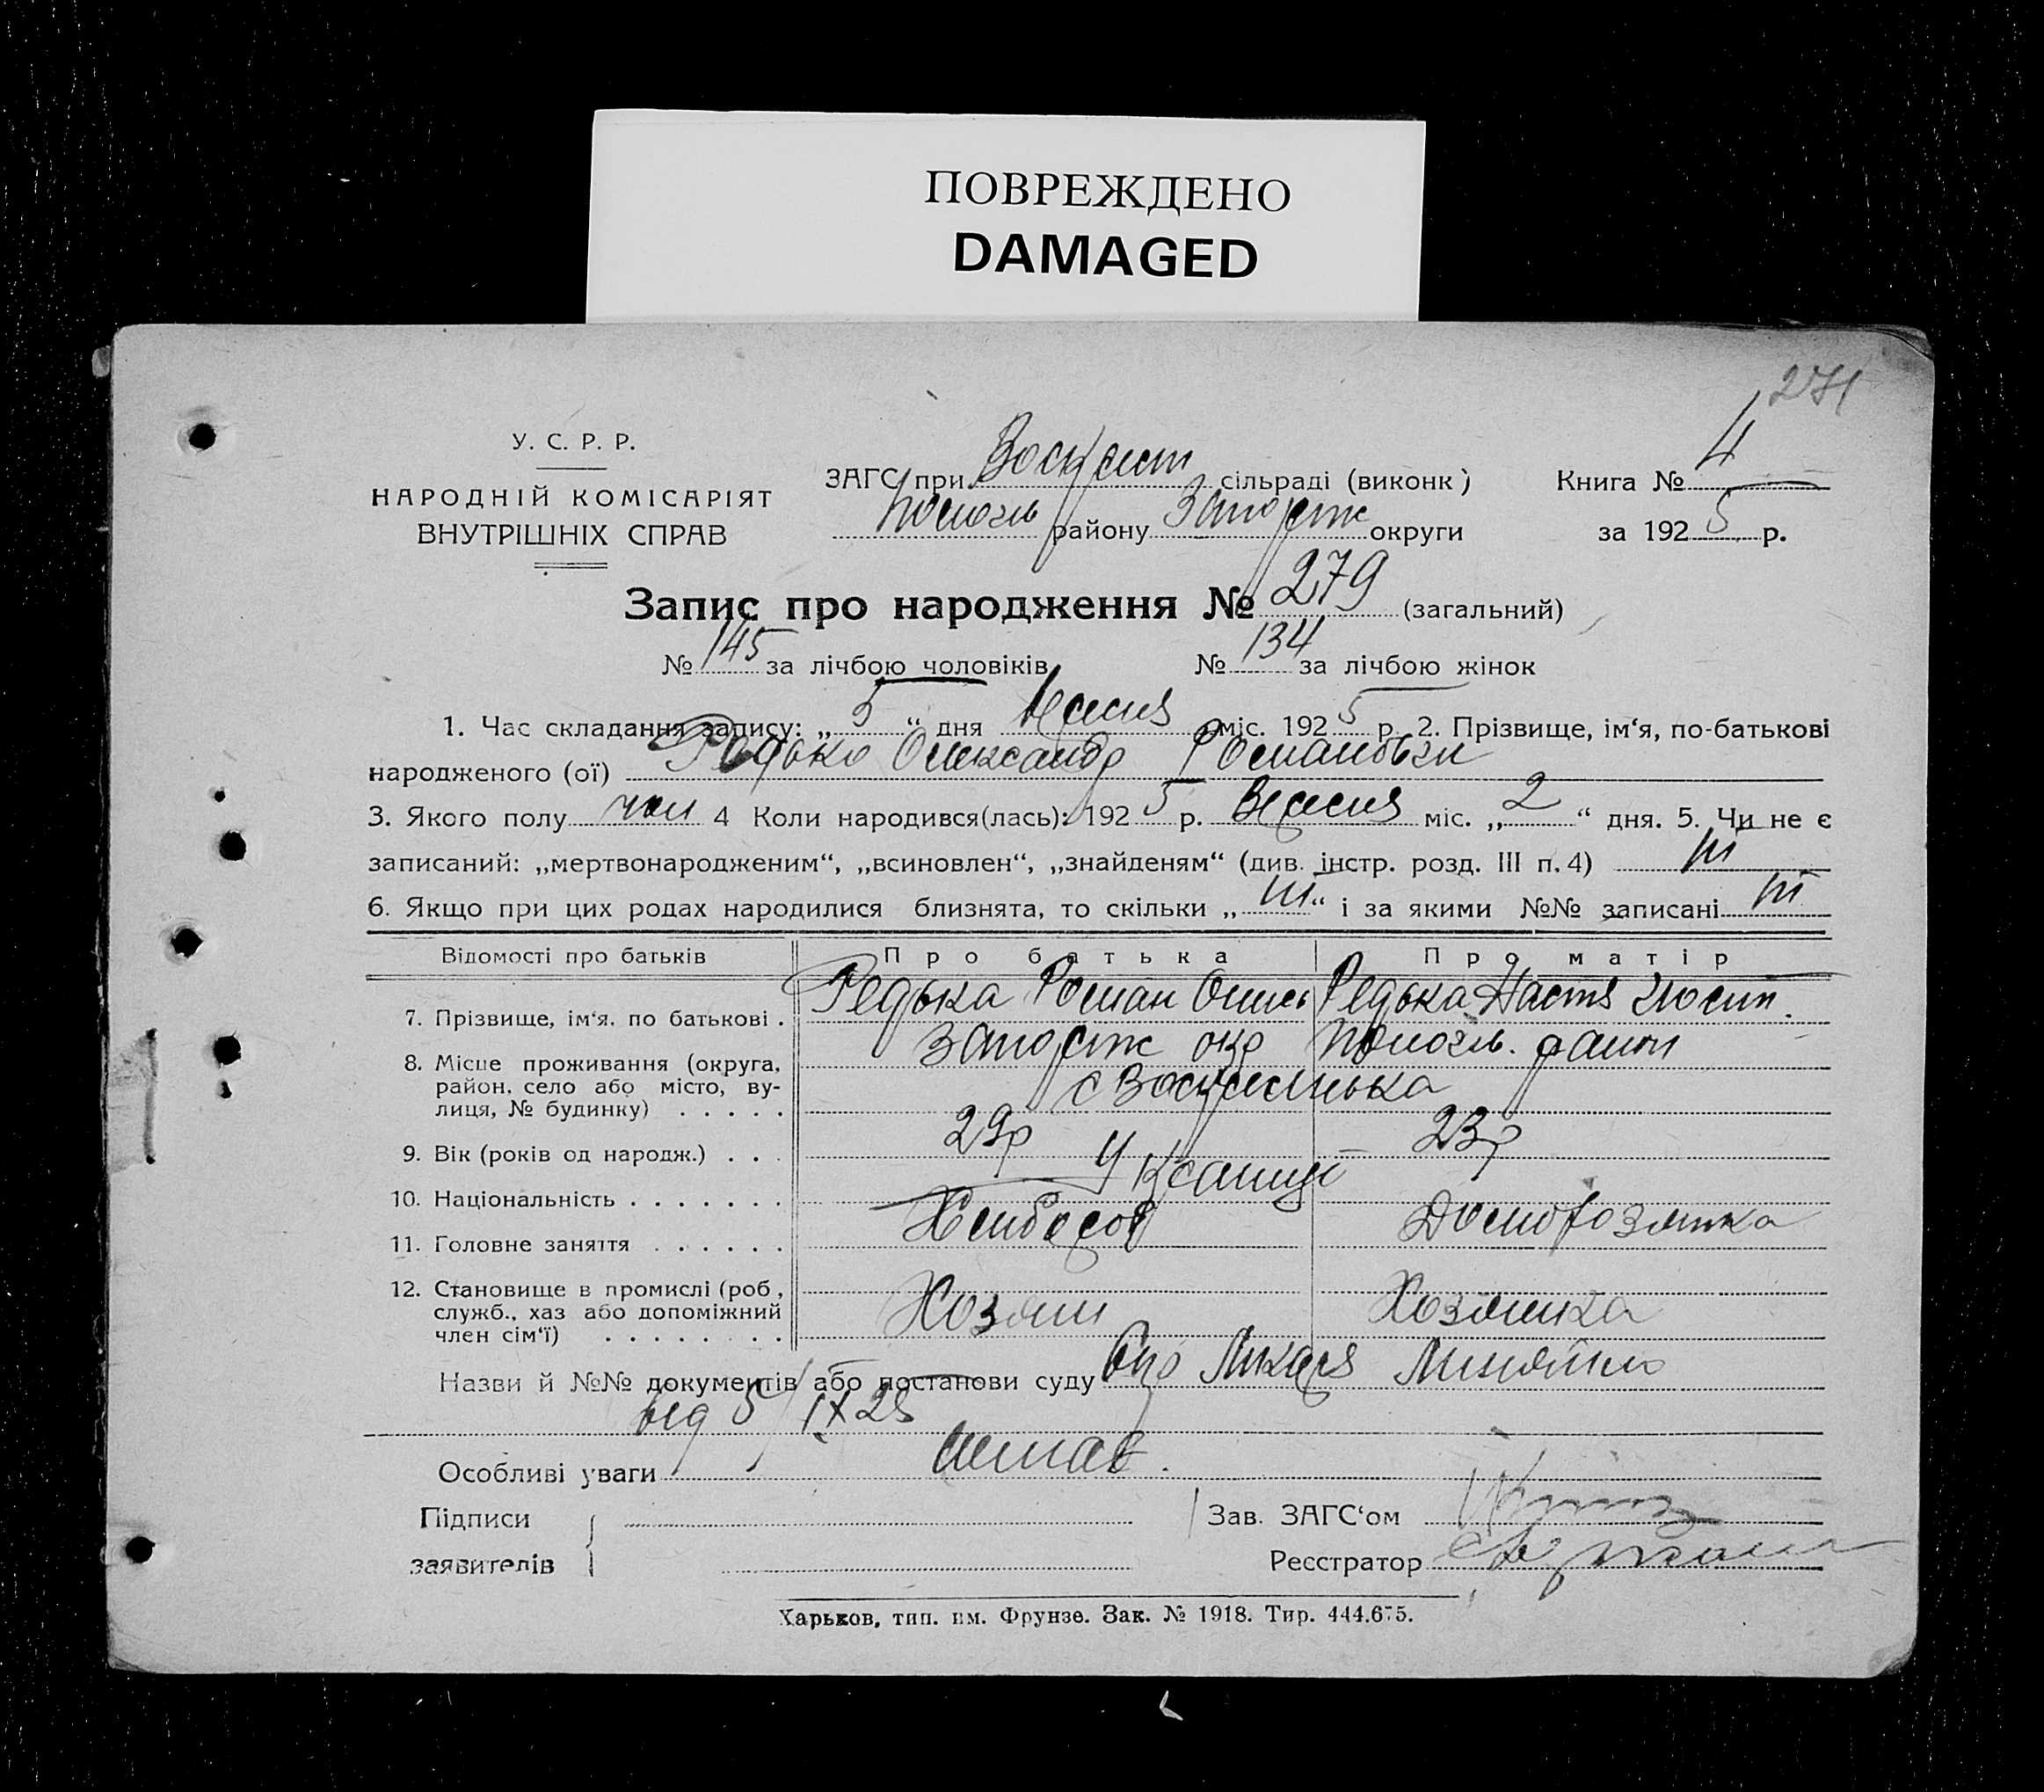 ПОВРЕЖДЕНО
DAMAGED
271
У. С. Р. Р.
НАРОДНІЙ КОМІСАРІЯТ
ВНУТРІШНІХ СПРАВ
ЗАГС при Воскресп сільраді (виконк) Книга № 4
Пологів району Запоріж округи за 1925 р.
Запис про народження № 279 (загальний)
№ 145 за лічбою чоловіків № 134 за лічбою жінок
1. Час складання запису: „5“ дня Вересня міс. 1925 р. 2. Прізвище, ім‘я, по-батькові
народженого (ої) Редько Олександр Романович
3. Якого полу чол 4 Коли народився(лась): 1925 р. Вересня міс. „2“ дня. 5. Чи не є
записаний: „мертвонародженим“, „всиновлен“, „знайденям“ (див. інстр. розд. III п. 4) ні
6. Якщо при цих родах народилися близнята, то скільки „ні“ і за якими №№ записані ні
Відомості про батьків Про батька Про матір
7. Прізвище, ім‘я. по батькові . Редька Роман Редька Настя
8. Місце проживання (округа, район, село або місто, вулиця, № будинку) . . . . . Запоріж окр Пологів. район
с Воскресенька
9. Вік (років од народж.) . . . 29р 23р
10. Національність . . . . . . . Українці
11. Головне заняття . . . . . . Хлібороб Домохозяйка
12. Становище в промислі (роб, служб., хаз або допоміжний член сім‘ї) . . . . . . . . Хозяин Хозяйка
Назви й №№ документів або постанови суду Лікаря
від 5/IX 25
Особливі уваги немає.
Підписи
заявителів
Зав. ЗАГС‘ом
Реєстратор
Харьков, тип. им. Фрунзе. Зак. № 1918. Тир. 444.675.